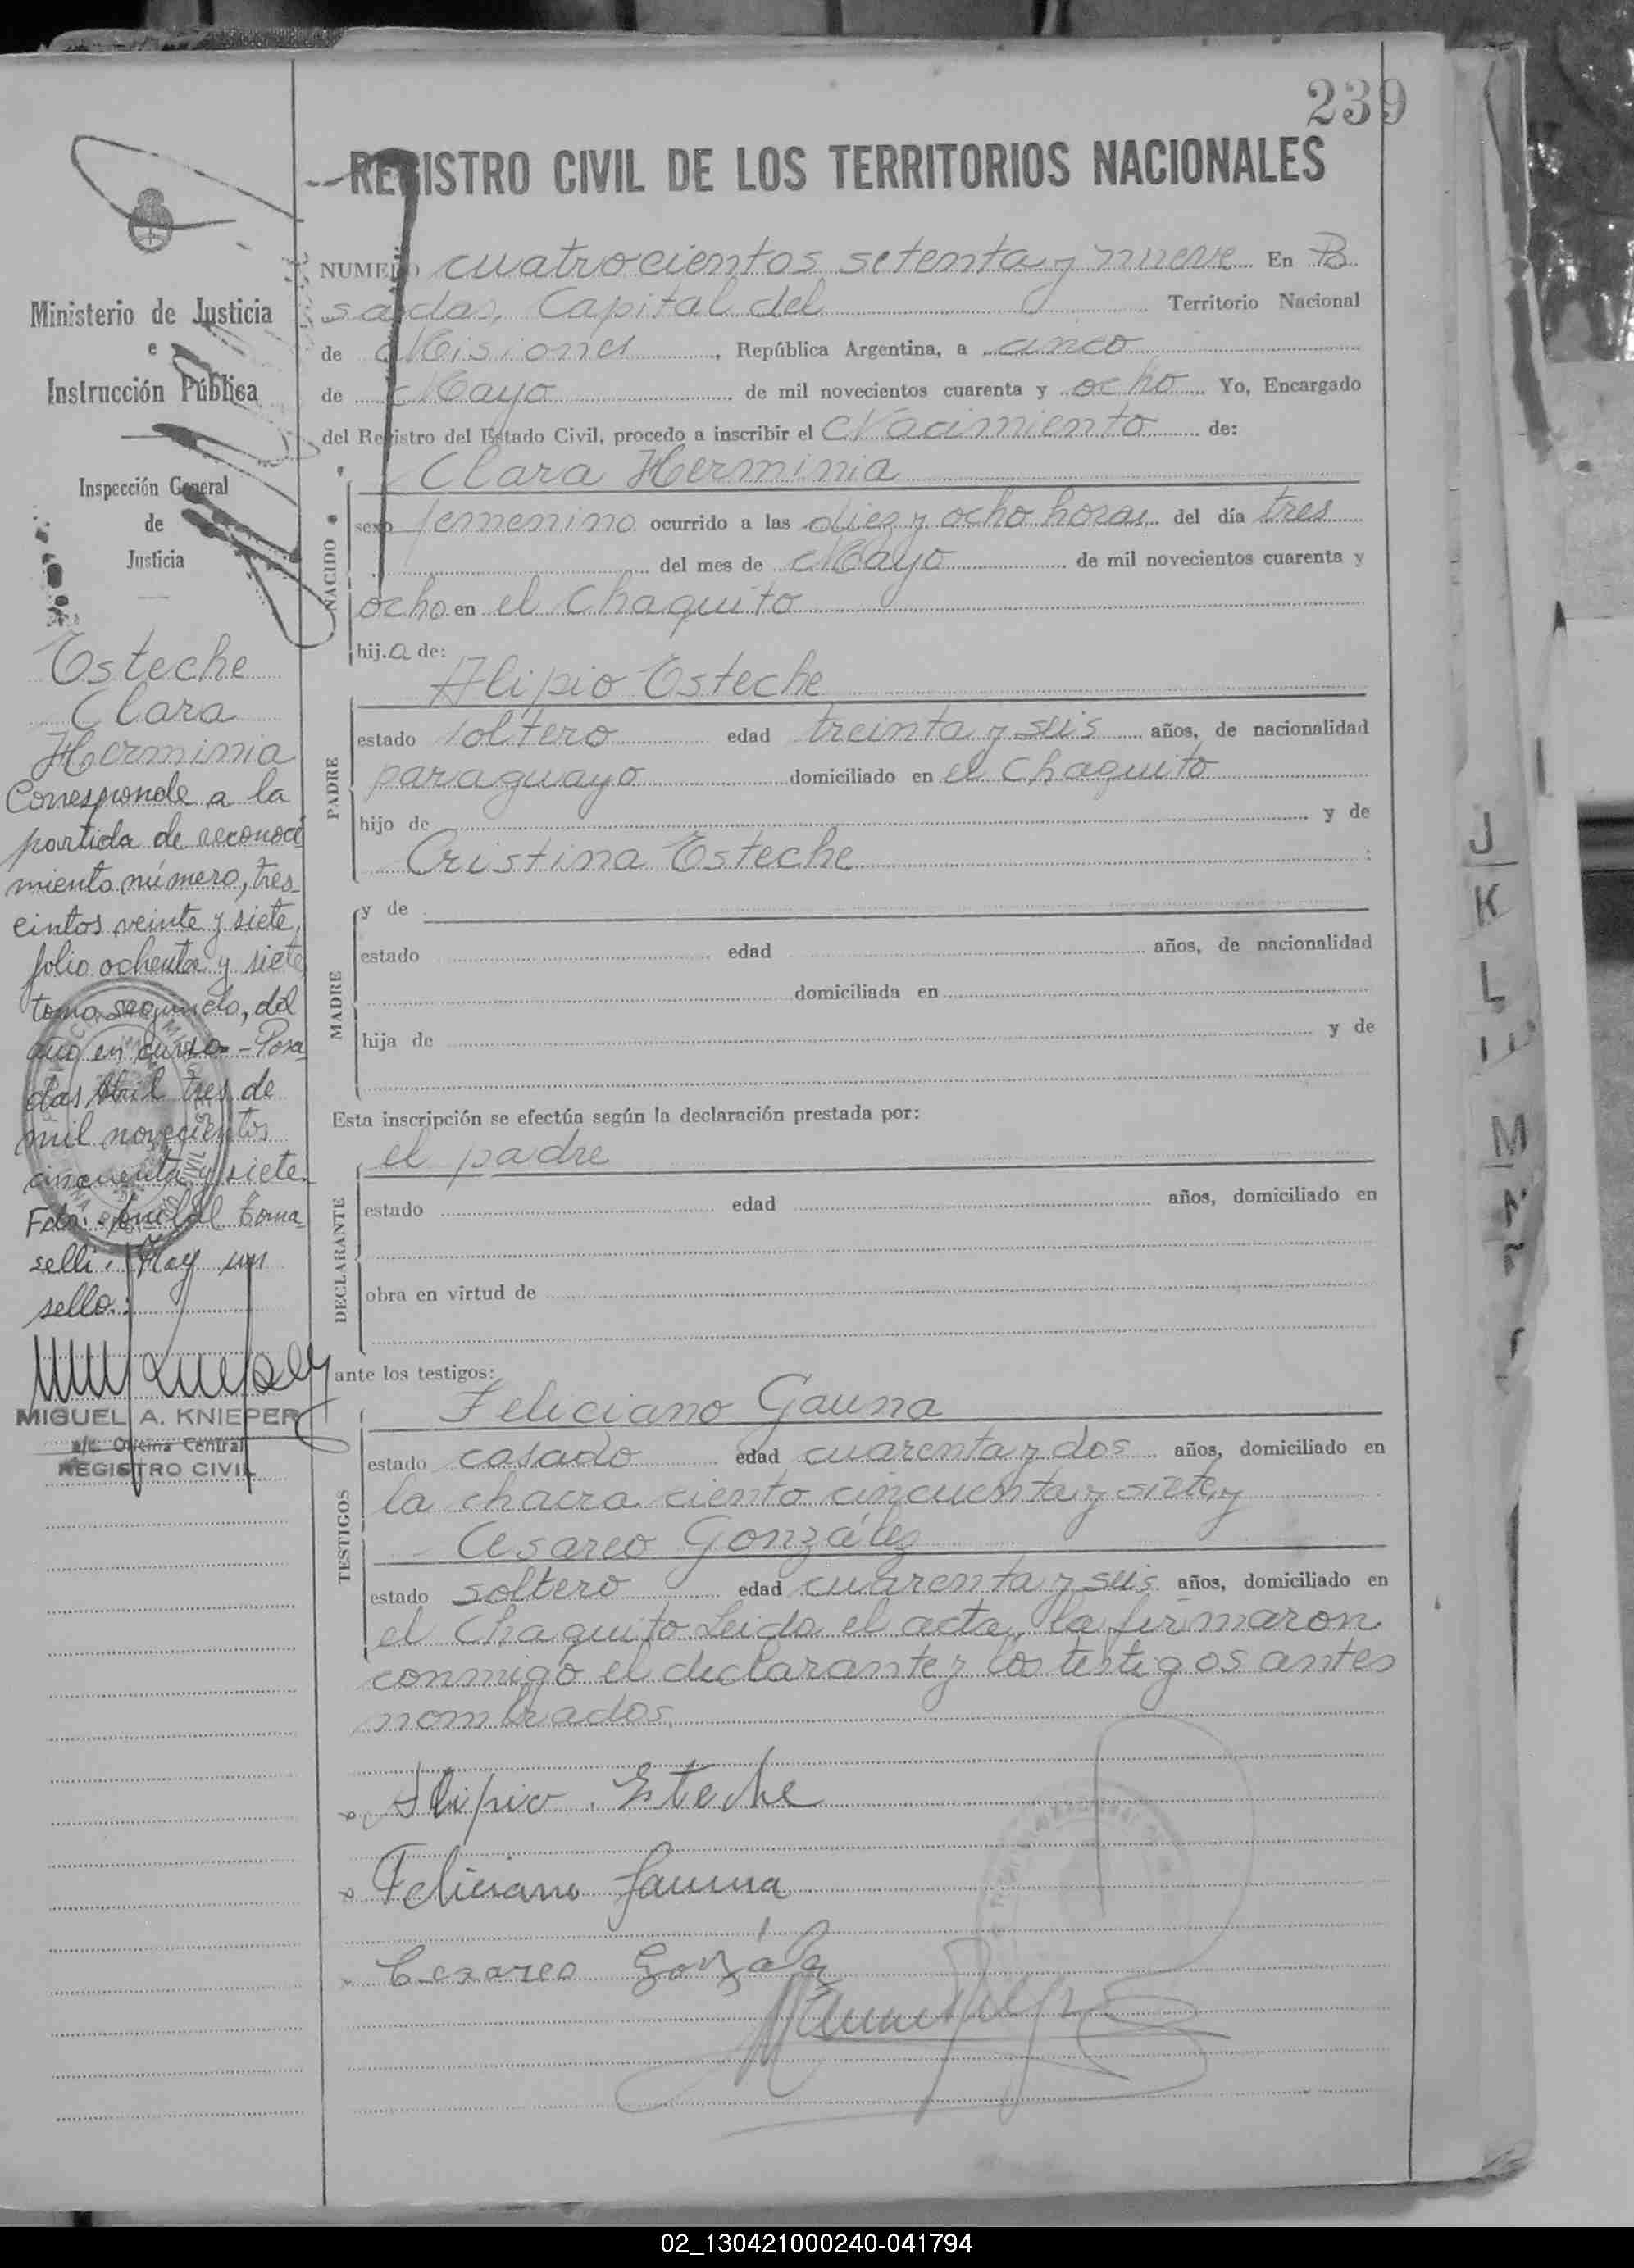 239
REGISTRO CIVIL DE LOS TERRITORIOS NACIONALES
Ministerio de Justicia
e
Instrucción Pública
Inspección General
de
Justicia
Esteche
Clara
Herminia
Corresponde a la
partida de reconoci
miento número, tres
cintos veinte y siete,
folio ochenta y siete
tomo segundo, del
año en curso - Posa
das Abril tres de
mil novecientos
cincuenta y siete.
Fdo: Toma
selli. Hay un
sello.:
MIGUEL A. KNIEPER
a/c. Oficina Central
REGISTRO CIVIL
NUMERO cuatrocientos setenta y nueve En Po
sadas, Capital del Territorio Nacional
de Misiones, República Argentina, a cinco
de Mayo de mil novecientos cuarenta y ocho Yo, Encargado
del Registro del Estado Civil, procedo a inscribir el Nacimiento de:
NACIDO
Clara Herminia
sexo femenino ocurrido a las diez y ocho horas del día tres
del mes de Mayo de mil novecientos cuarenta y
ocho en el Chaquito
hij.a de:
PADRE
Alipio Esteche
estado soltero edad treinta y seis años, de nacionalidad
paraguayo domiciliado en el Chaquito
hijo de y de
Cristina Esteche :
MADRE
y de
estado edad años, de nacionalidad
domiciliada en
hija de y de
Esta inscripción se efectúa según la declaración prestada por:
DECLARANTE
el padre
estado edad años, domiciliado en
obra en virtud de
ante los testigos:
TESTIGOS
Feliciano Gauna
estado casado edad cuarenta y dos años, domiciliado en
la chacra ciento cincuenta y siete y
Cesareo González
estado soltero edad cuarenta y seis años, domiciliado en
el Chaquito Leida el acta, la firmaron
conmigo el declarante y los testigos antes
nombrados.
Alipio. Esteche
Feliciano Gauna
Cesareo González
J
K
L
M
N
02_130421000240-041794